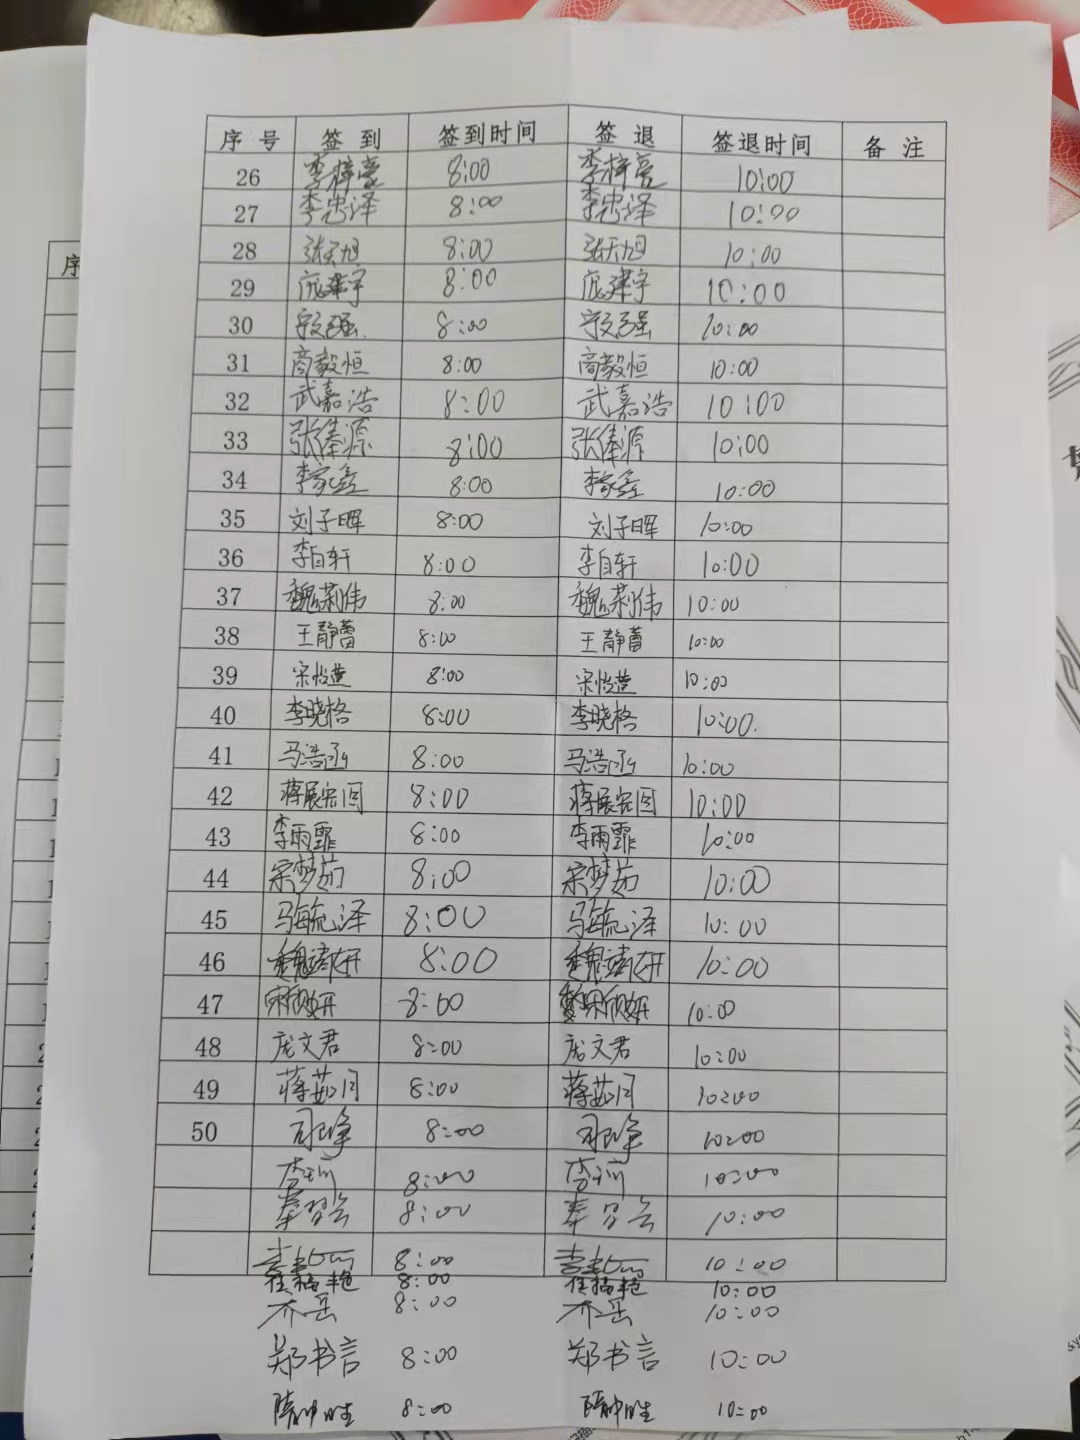 序号 签到 签到时间 签退 签退时间 备注
26 李梓豪 8:00 李梓亮 10:00
27 李忠泽 8:00 李忠泽 10:00
28 张天旭 8:00 张天旭 10:00
29 庞建宇 8:00 庞建宇 10:00
30 8:00 10:00
31 商毅恒 8:00 商毅恒 10:00
32 武嘉浩 8:00 武嘉浩 10:00
33 张俸源 8:00 张俸源 10:00
34 李家鑫 8:00 李家鑫 10:00
35 刘子晖 8:00 刘子晖 10:00
36 李自轩 8:00 李自轩 10:00
37 魏莉伟 8:00 魏莉伟 10:00
38 王静蕾 8:00 王静蕾 10:00
39 宋怡萱 8:00 宋怡萱 10:00
40 李晓格 8:00 李晓格 10:00.
41 马浩函 8:00 马浩函 10:00
42 蒋展宏图 8:00 蒋展宏图 10:00
43 李雨霏 8:00 李雨霏 10:00
44 宋梦茹 8:00 宋梦茹 10:00
45 马毓泽 8:00 马毓泽 10:00
46 8:00 10:00
47 宋欣妍 8:00 宋欣妍 10:00
48 庞文君 8:00 庞文君 10:00
49 蒋茹月 8:00 蒋茹月 10:00
50 8:00 10:00
8:00 10:00
8:00 10:00
8:00 10:00
8:00 10:00
齐岳 8:00 齐岳 10:00
郑书言 8:00 郑书言 10:00
8:00 10:00